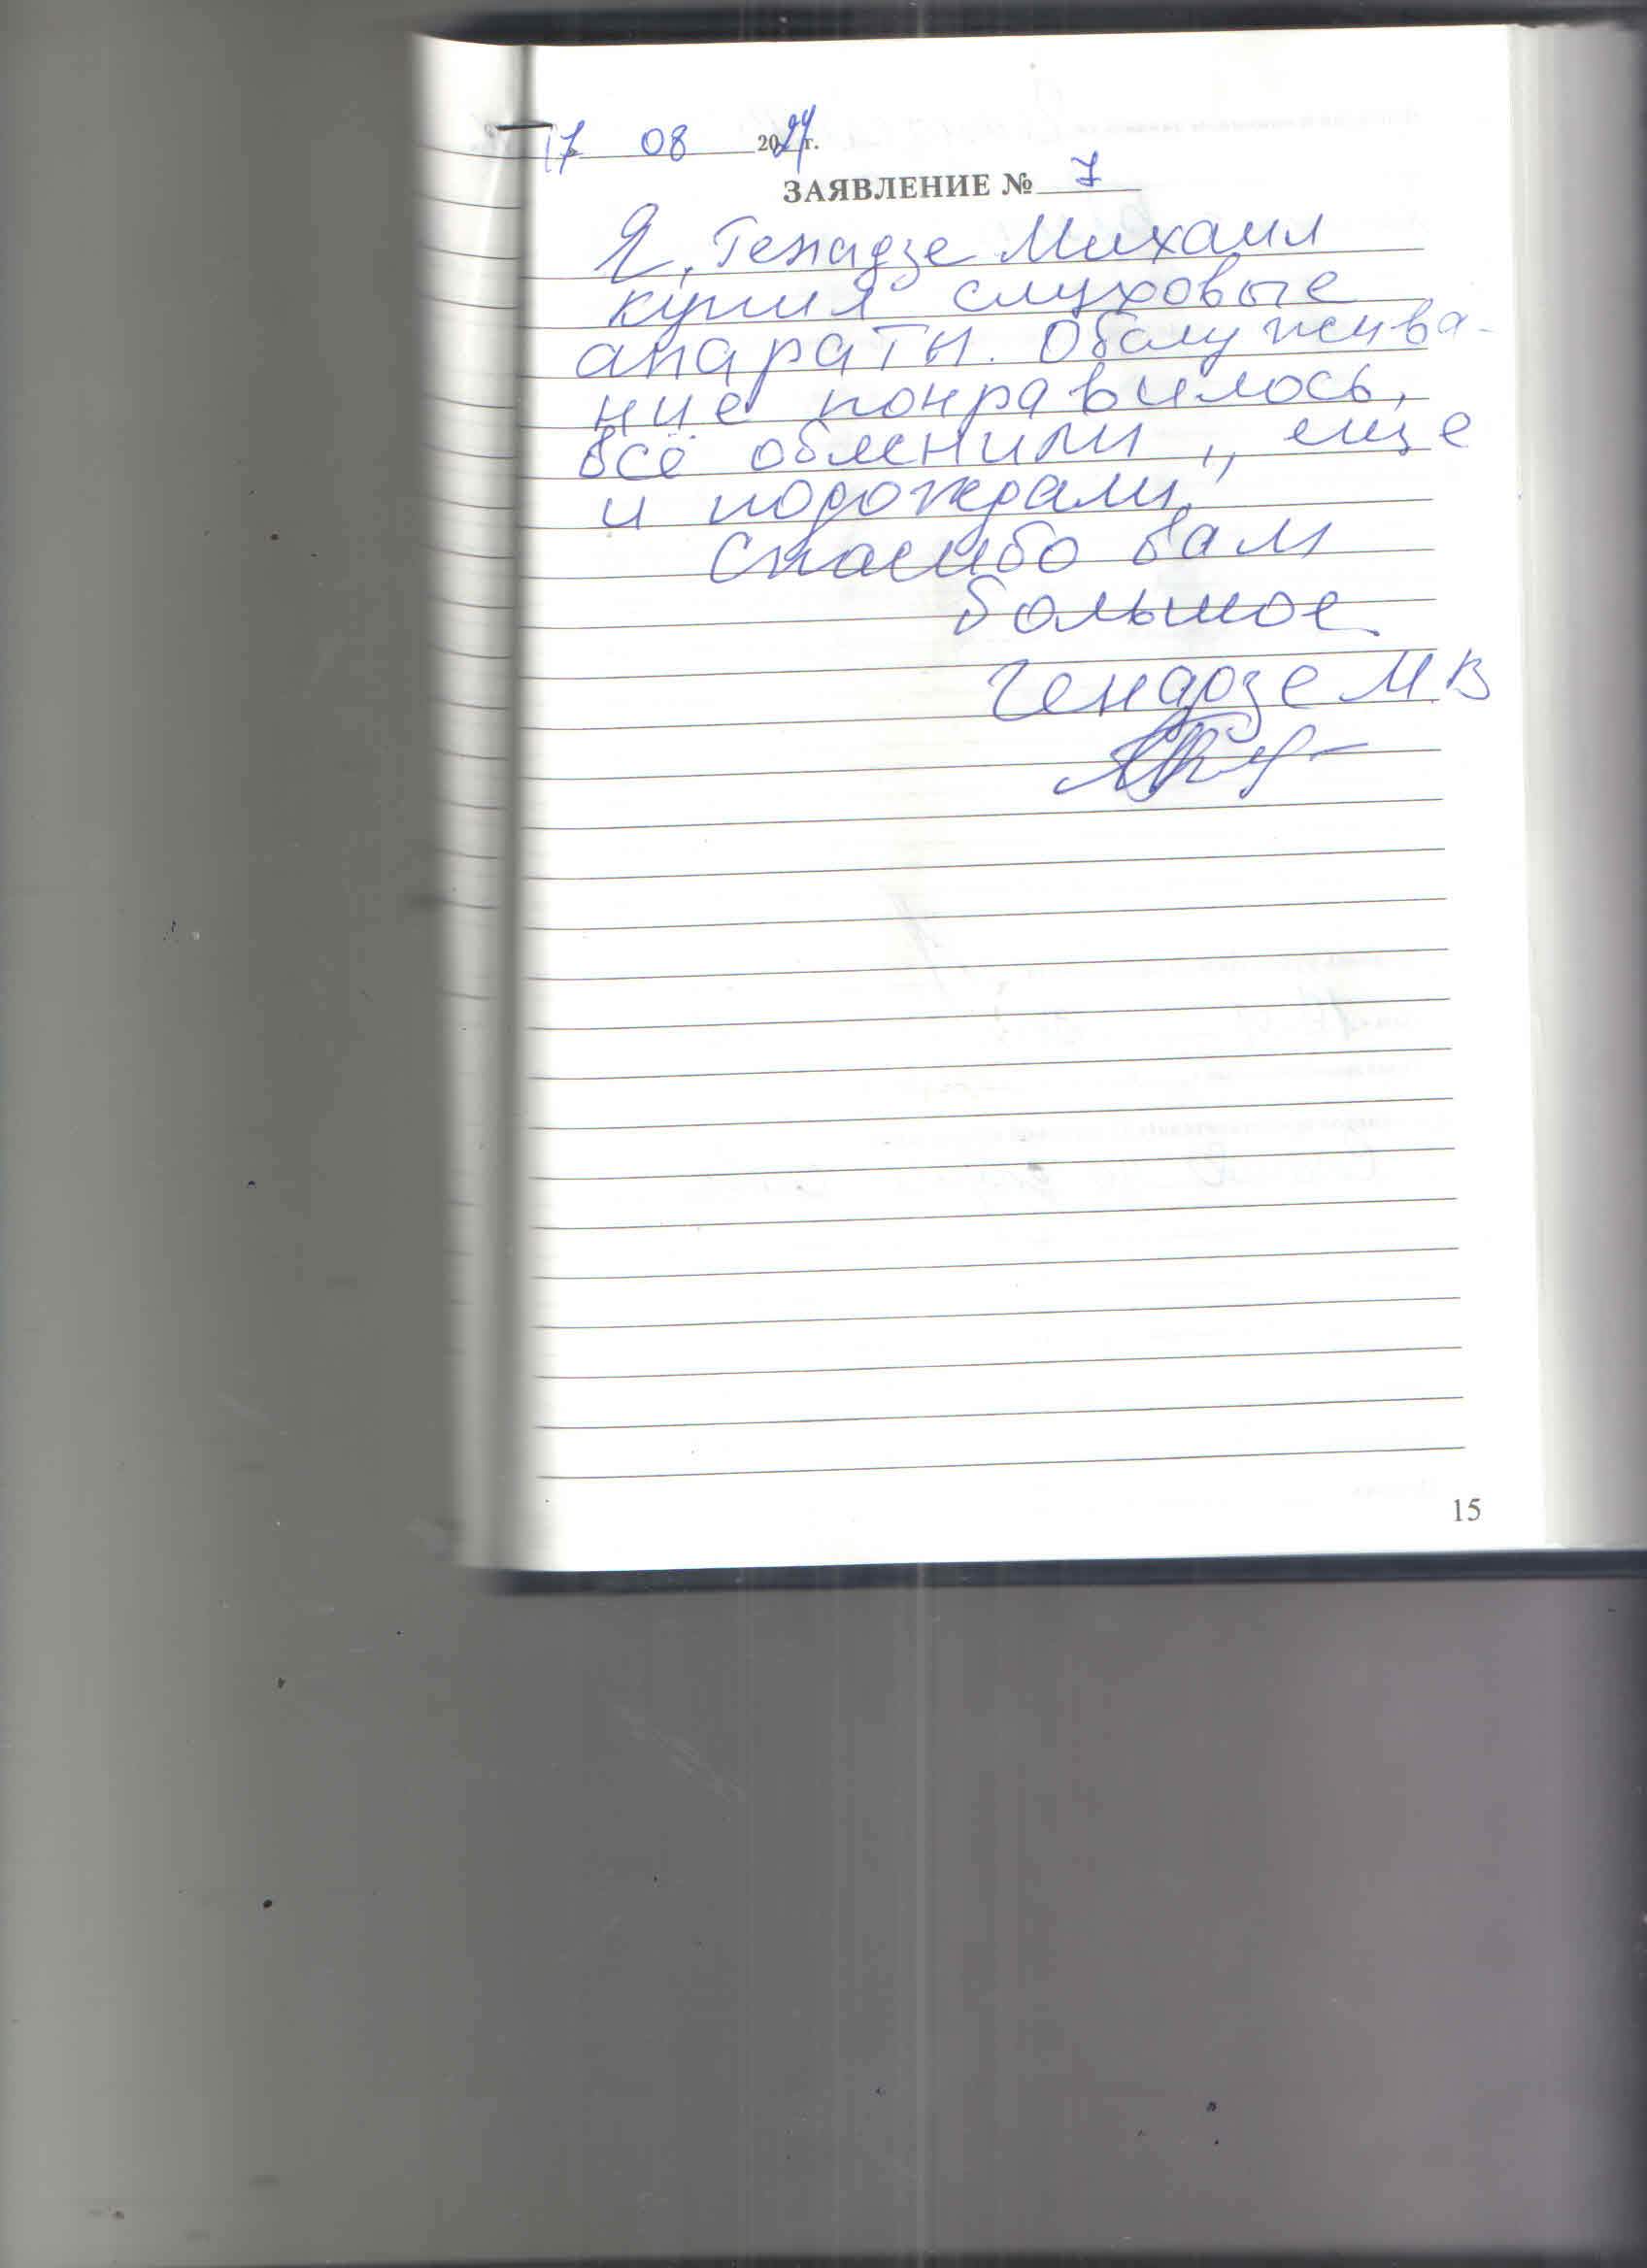 17 08 2024г.
ЗАЯВЛЕНИЕ № 7
Я, Генадзе Михаил
купил слуховые
апараты. Обслужива-
ние понравилось,
всё обяснили, еще
и подождали.
Спасибо вам
большое.
Генадзе М В
15